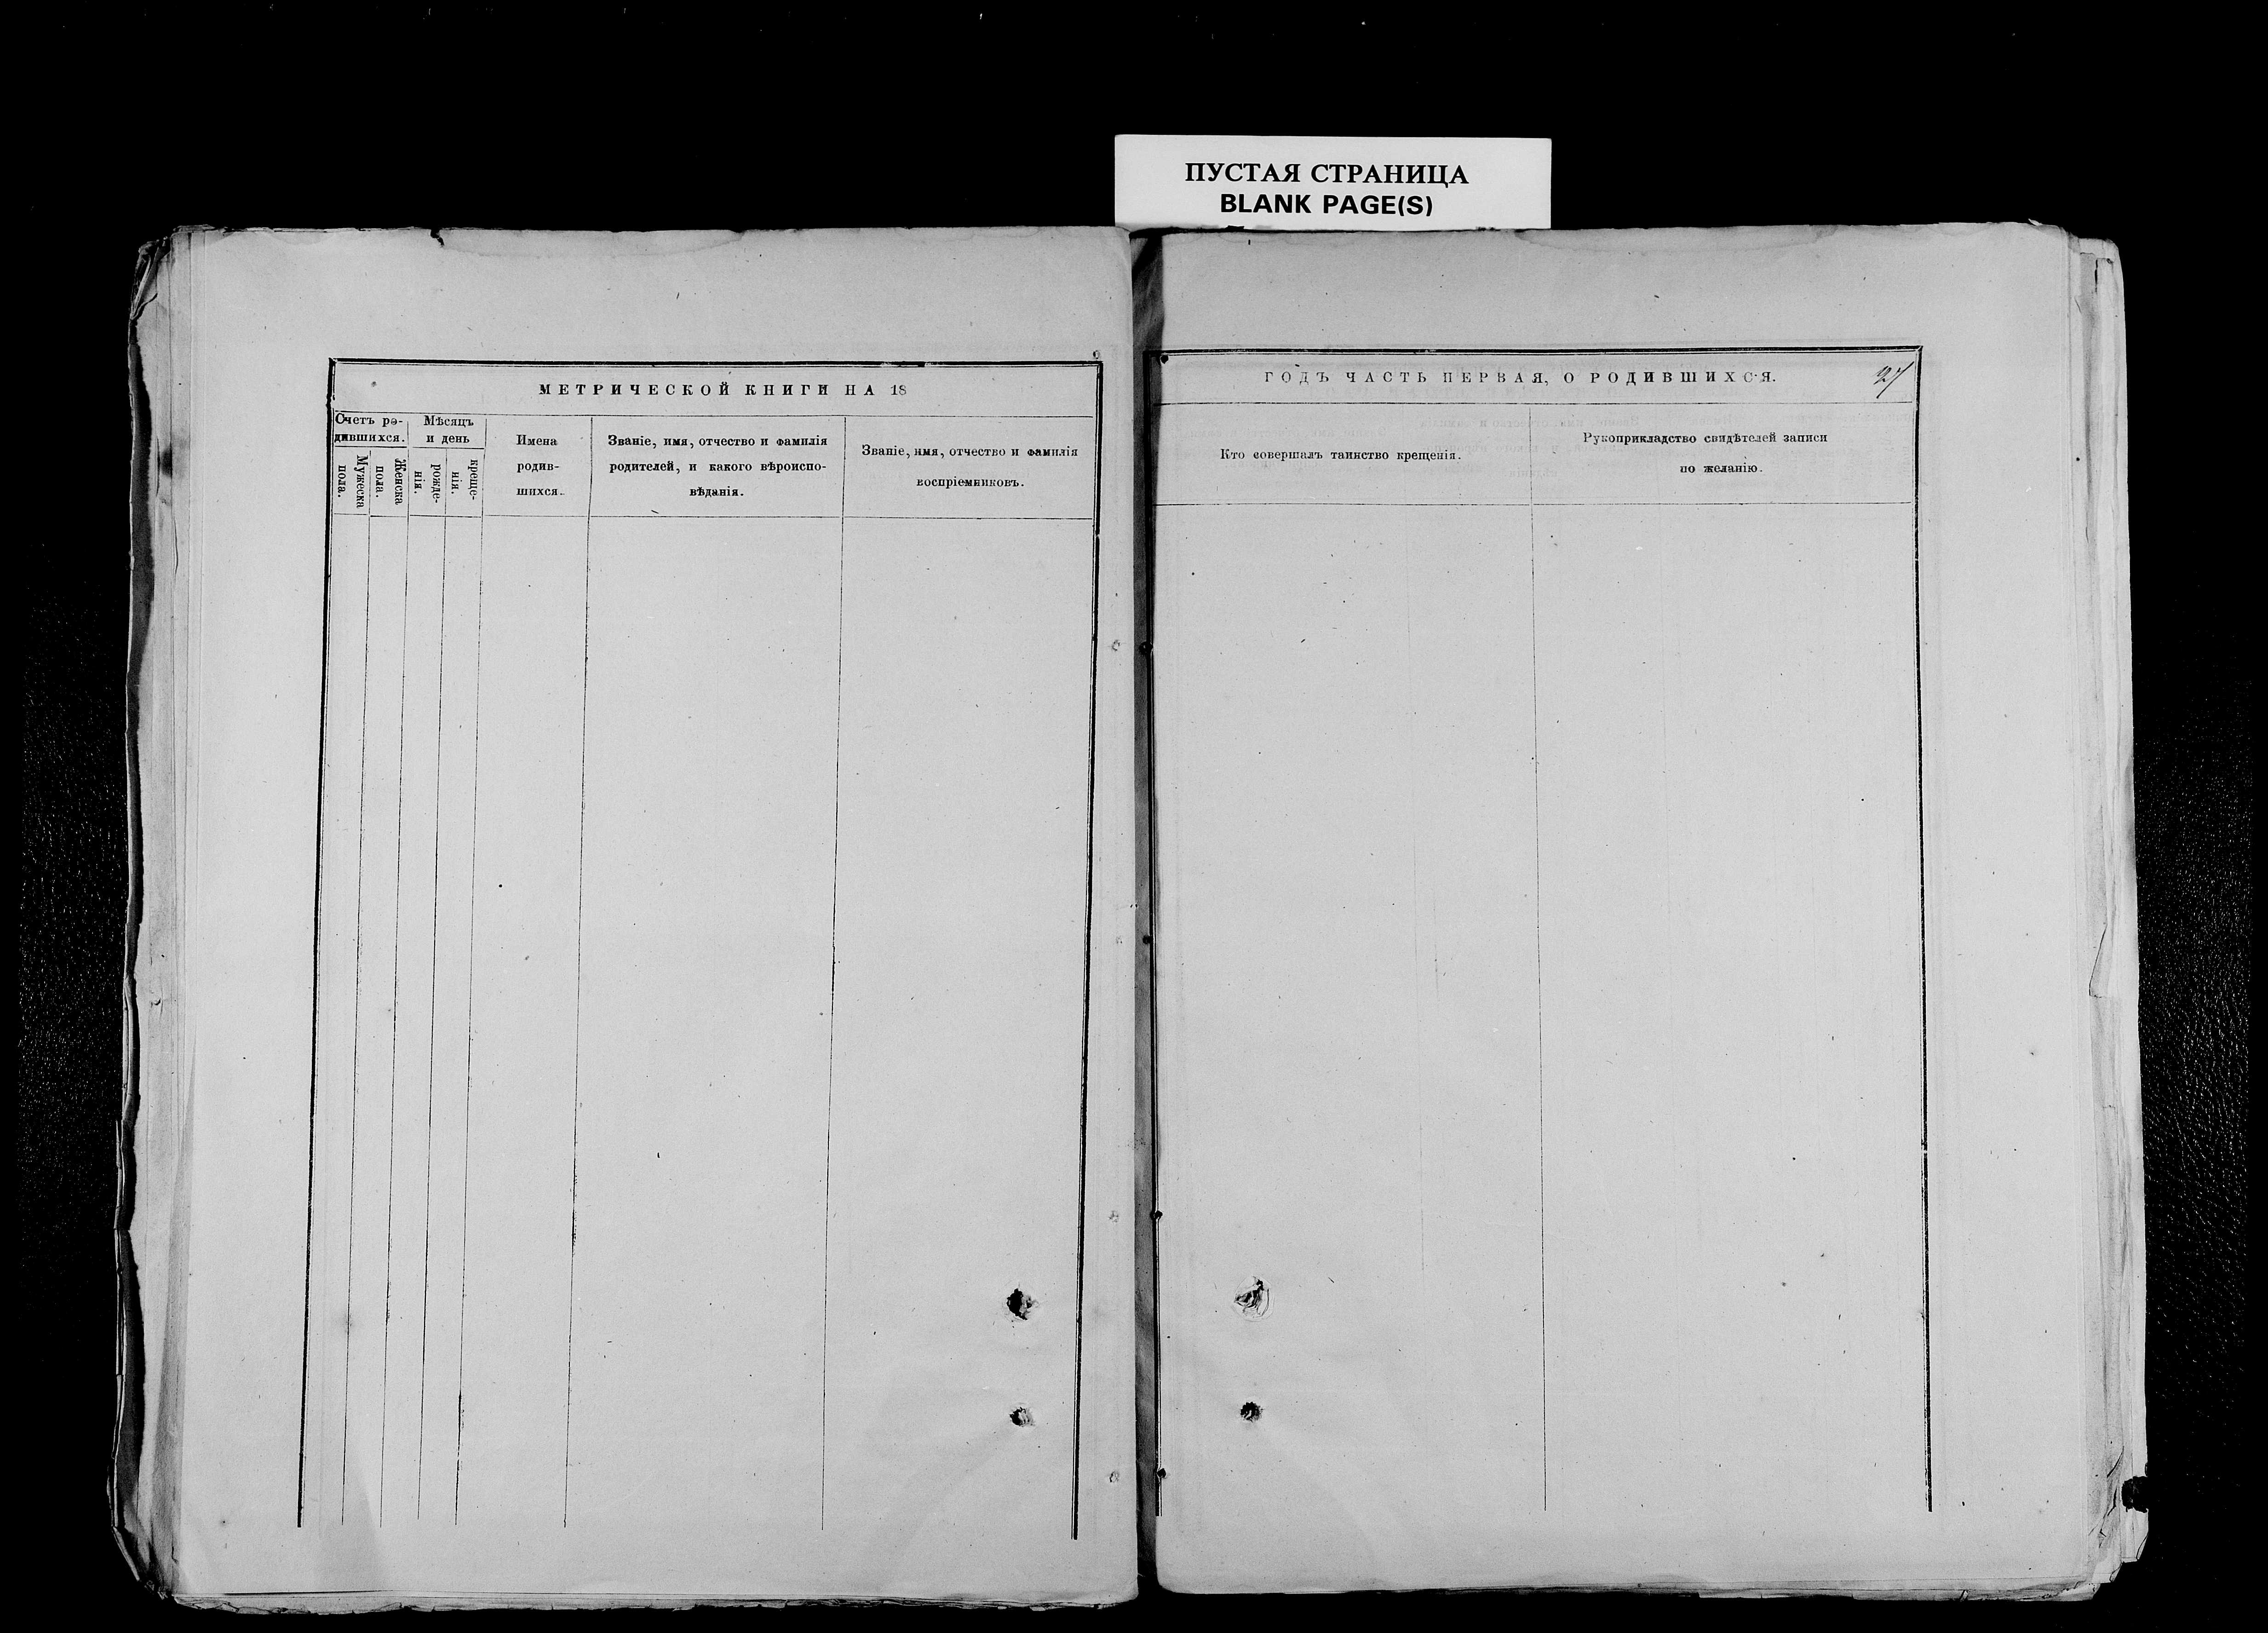 ПУСТАЯ СТРАНИЦА
BLANK PAGE(S)
МЕТРИЧЕСКОЙ КНИГИ НА 18
Счетъ ро-
дившихся.
Мужеска
пола.
Женска
пола.
Мѣсяцъ
и день
рожде-
нія.
креще-
нія.
Имена
родив-
шихся.
Званіе, имя, отчество и фамилія
родителей, и какого вѣроиспо-
вѣданія.
Званіе, имя, отчество и фамилія
воспріемниковъ.
ГОДЪ ЧАСТЬ ПЕРВАЯ, О РОДИВШИХСЯ.
27
Кто совершалъ таинство крещенія.
Рукоприкладство свидѣтелей записи
по желанію.